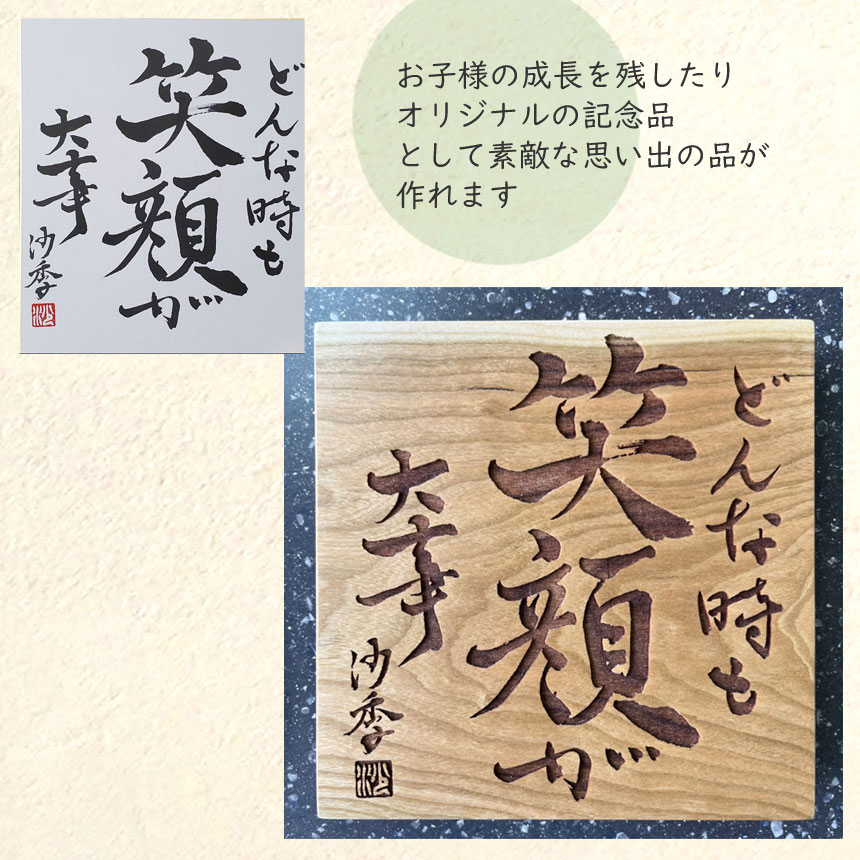 お子様の成長を残したり
オリジナルの記念品
として素敵な思い出の品が
作れます
どんな時も
笑顔が
大事
沙季
沙
どんな時も
笑顔が
大事
沙季
沙